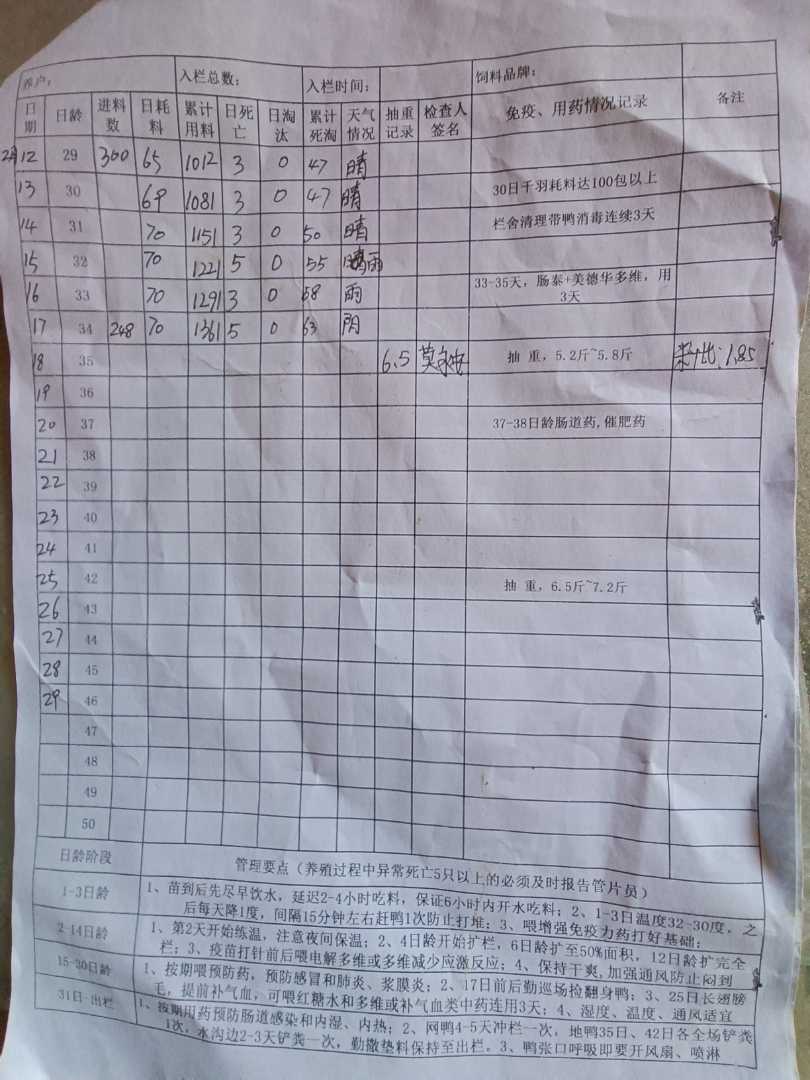 养户： 入栏总数： 入栏时间： 饲料品牌：
日期 日龄 进料数 日耗料 累计用料 日死亡 日淘汰 累计死淘 天气情况 抽重记录 检查人签名 免疫、用药情况记录 备注
2月12 29 300 65 1012 3 0 47 晴
13 30 69 1081 3 0 47 晴 30日千羽耗料达100包以上
14 31 70 1151 3 0 50 晴 栏舍清理带鸭消毒连续3天
15 32 70 1221 5 0 55 雨
16 33 70 1291 3 0 58 雨 33-35天，肠泰+美德华多维，用3天
17 34 248 70 1361 5 0 63 阴
18 35 6.5 抽 重，5.2斤~5.8斤 料比：1.85
19 36
20 37 37-38日龄肠道药,催肥药
21 38
22 39
23 40
24 41
25 42 抽 重，6.5斤~7.2斤
26 43
27 44
28 45
29 46
47
48
49
50
日龄阶段 管理要点（养殖过程中异常死亡5只以上的必须及时报告管片员）
1-3日龄 1、苗到后先尽早饮水，延迟2-4小时吃料，保证6小时内开水吃料；2、1-3日温度32-30度，之
后每天降1度，间隔15分钟左右赶鸭1次防止打堆；3、喂增强免疫力药打好基础；
2-14日龄 1、第2天开始练温，注意夜间保温；2、4日龄开始扩栏，6日龄扩至50%面积，12日龄扩完全
栏；3、疫苗打针前后喂电解多维或多维减少应激反应；4、保持干爽,加强通风防止闷到
15-30日龄 1、按期喂预防药，预防感冒和肺炎、浆膜炎；2、17日前后勤巡场捡翻身鸭；3、25日长翅膀
毛，提前补气血，可喂红糖水和多维或补气血类中药连用3天；4、湿度、温度、通风适宜
31日-出栏 1、按期用药预防肠道感染和内湿、内热；2、网鸭4-5天冲栏一次，地鸭35日、42日各全场铲粪
1次，水沟边2-3天铲粪一次，勤撒垫料保持至出栏。3、鸭张口呼吸即要开风扇、喷淋